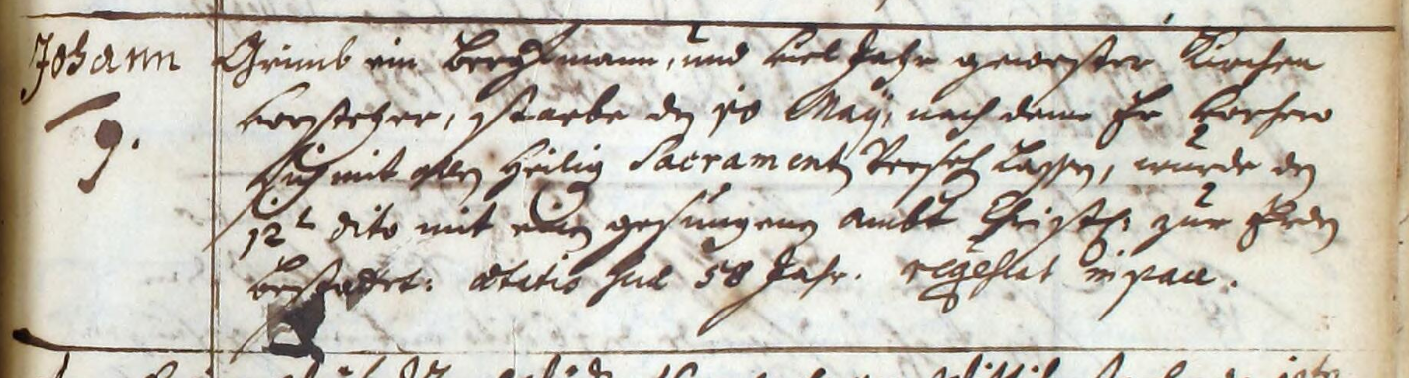 Johann Grimb ein Bergkmann, und viel Jahr gewester Kirchen
9. vorsteher, starbe den 10 Maÿ, nach deme Er vorhero
sich mit allen heilig Sacramenten Versehen lassen, wurde den
12t dito mit einen gesungenen Ambt Christl: zur Erden
bestattet: ætatis suæ 58 Jahr. reqescat in pace.